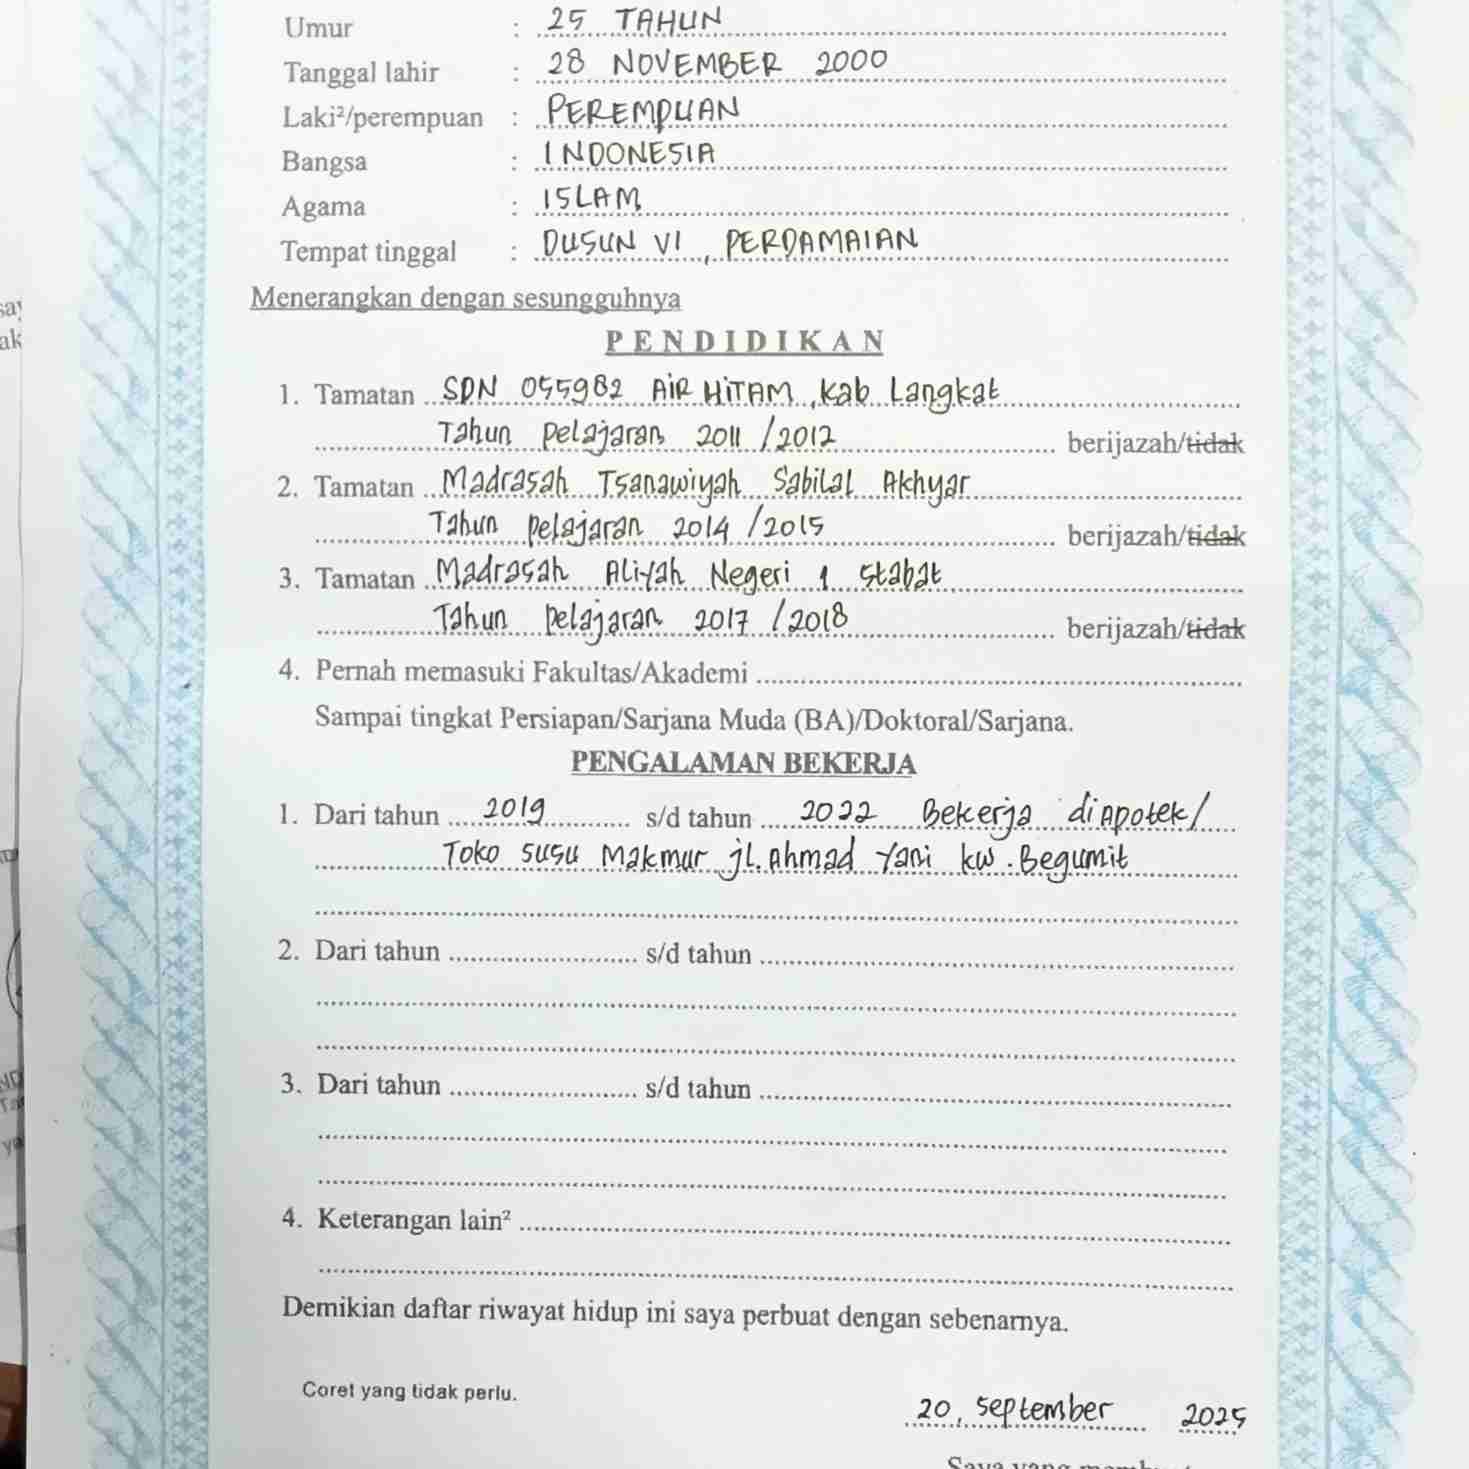 Umur : 25 TAHUN
Tanggal lahir : 28 NOVEMBER 2000
Laki²/perempuan : PEREMPUAN
Bangsa : INDONESIA
Agama : ISLAM
Tempat tinggal : DUSUN VI, PERDAMAIAN
Menerangkan dengan sesungguhnya
PENDIDIKAN
1. Tamatan SDN 055982 AIR HITAM, Kab Langkat
Tahun pelajaran 2011/2012 berijazah/tidak
2. Tamatan Madrasah Tsanawiyah Sabilal Akhyar
Tahun pelajaran 2014/2015 berijazah/tidak
3. Tamatan Madrasah Aliyah Negeri 1 Stabat
Tahun pelajaran 2017/2018 berijazah/tidak
4. Pernah memasuki Fakultas/Akademi
Sampai tingkat Persiapan/Sarjana Muda (BA)/Doktoral/Sarjana.
PENGALAMAN BEKERJA
1. Dari tahun 2019 s/d tahun 2022 Bekerja di Apotek/
Toko susu Makmur jl. Ahmad Yani kw. Begumit
2. Dari tahun s/d tahun
3. Dari tahun s/d tahun
4. Keterangan lain²
Demikian daftar riwayat hidup ini saya perbuat dengan sebenarnya.
Coret yang tidak perlu.
20, September 2025
Saya yang